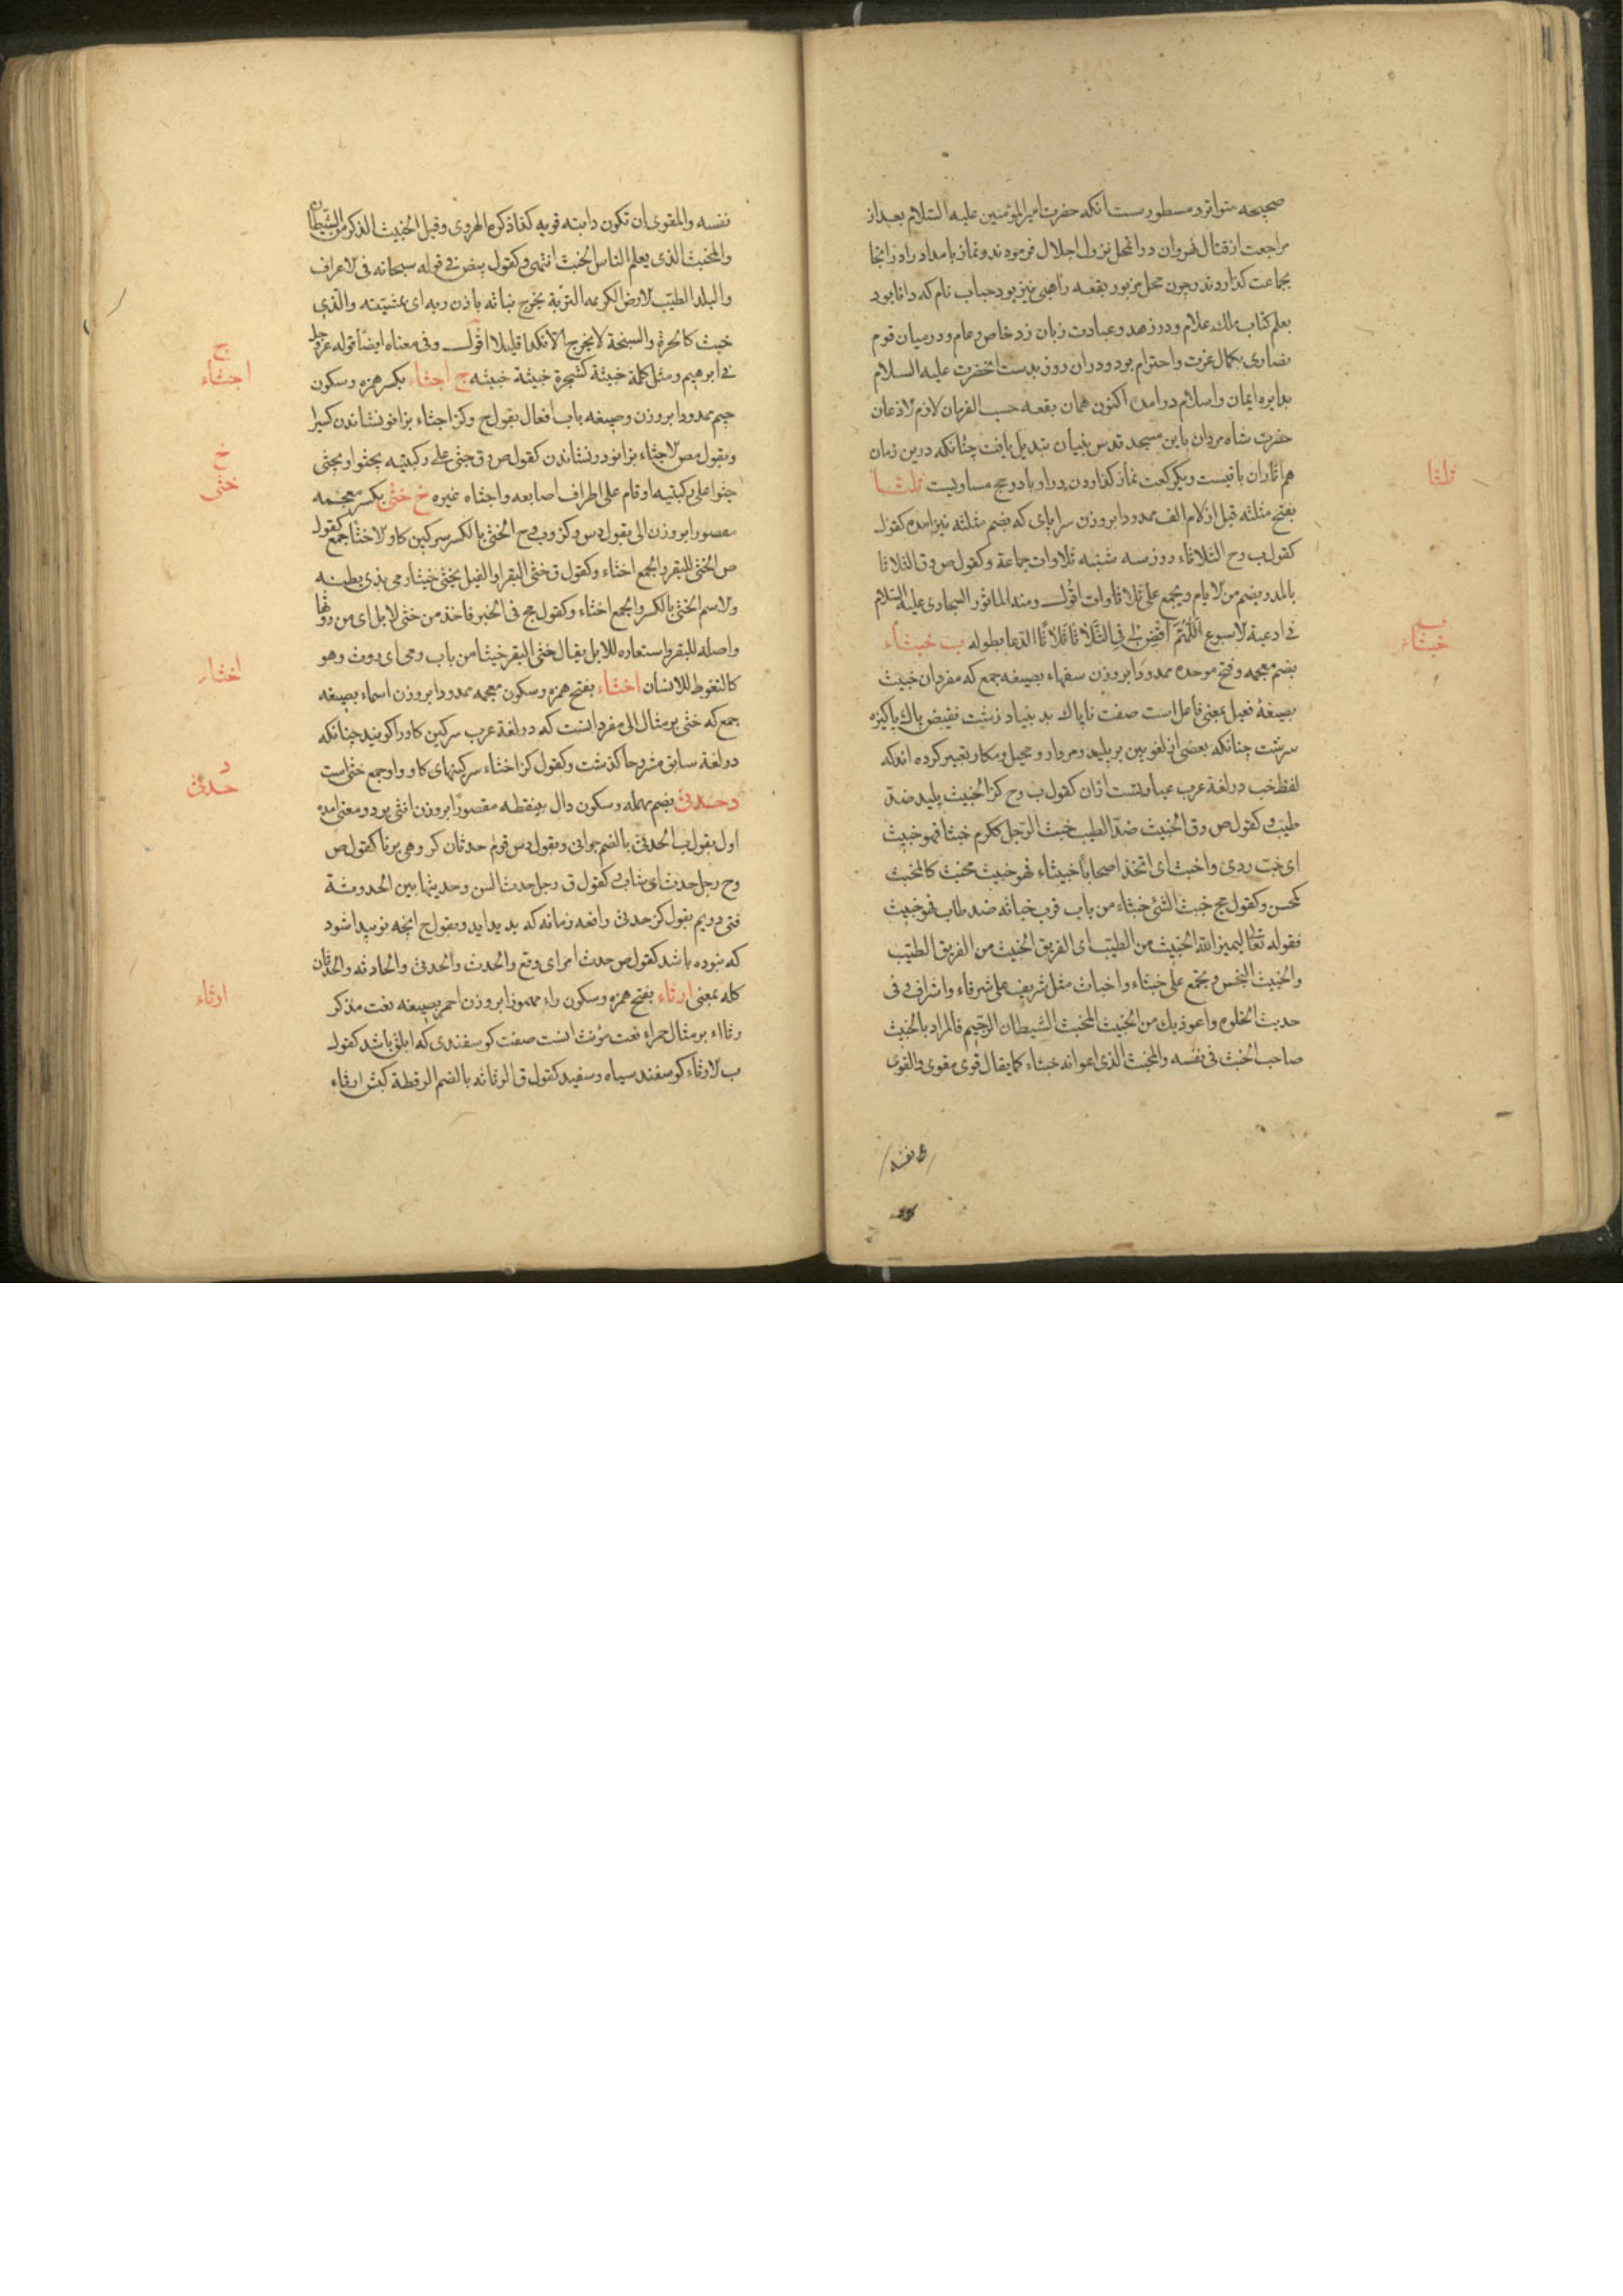 صحیحه متواتر و مسطورست انکه حضرت امیرالمؤمنین علیه السّلام بعد از
مراجعت از قتال نهروان درانمحل نزول اجلال فرمودند و نماز بامداد را در انجا
بجماعت کذاردند و چون محل مزبور بقعه راهبی نیز بود حباب نام که دانا بود
بعلم کتاب ملک علام و در زهد و عبادت زبان زد خاص و عام و در میان قوم
نصاری بکمال عزت و احترام بود و دران روز بدست انحضرت علیه السلام
بدایره ایمان و اسلام درامد اکنون همان بقعه حسب الفرمان لازم الاذعان
حضرت شاه مردان باین مسجد قدس بنیان تبدیل یافت چنانکه درین زمان
هم اثار ان باقیست و یکرکعت نماز کذاردن در او با دو حج مساویست ثلثا
بفتح مثلثه قبل از لام الف ممدودا بروزن سرابای که بضم مثلثه نیز امده کقول
کقول ب وح الثلاثاء روز سه شنبه ثلاوات جماعة و کقول ص و ق الثلاثا
بالمد و یضم من الایام و یجمع علی ثلاثاوات اقول و منه الماثور السجادی علیه السّلام
فی ادعیة الاسبوع اللّهُمّ اقض لی فی الثّلاثا ثلاثًا الدعا بطوله ب خبثاء
بضم معجمه و فتح موحده ممدودا بروزن سفهاء بصیغه جمع که مفرد ان خبیث
بصیغهٔ فعیل بمعنی فاعل است صفت ناپاک بد بنیاد زشت نقیض پاک پاکیزه
سرشت چنانکه بعضی از لغویین بر پلید و مردار و محیل و مکار تعبیر کرده اند که
لفظ خب در لغة عرب عبارتست ازان کقول ب وح کز الخبیث پلید ضدّ
طیب و کقول ص وق الخبیث ضدّ الطیب خبث الرّجل ککرم خبثا فهو خبیث
ای خب ردی و اخبث ای اتخذ اصحاباً خبثاء فهو خبیث مخبث کالمخبث
کمحسن و کقول مج خبث الشئ خبثاء من باب قرب خباثه ضد طاب فهو خبیث
فقوله تعالی لیمیز الله الخبیث من الطیب ای الفریق الخبیث من الفریق الطیّب
والخبیث النجس و یجمع علی خبثاء و اخباث مثل شریف علی شرفاء و اشراف و فی
حدیث الخلوه و اعوذ بک من الخبیث المخبث الشّیطان الرّجیم فالمراد بالخبیث
صاحب الخبث فی نفسه والمخبث الذی اعوانه خبثاء کما یقال قوی مقوی والقوی
فی نفسه
ثلثا
ب
خبثاء
نفسه والمقوی ان تکون دابته قویه کذا ذکره الهروی و قیل الخبیث الذکر من الشّیطان
والمخبث الذی یعلم الناس الخبث انتهی و کقول بیض فی قوله سبحانه فی الاعراف
والبلد الطیّب الارض الکریمه التربة یخرج نباته باذن ربه ای بمشیته والّذی
خبث کالحرة والسبخة لا یخرج الّا نکدا قلیلا اقول و فی معناه ایضاً قوله عزوجل
فی ابرهیم و مثل کلمة خبیثة کشجرة خبیثة خبیثه ج اجثاء بکسر همزه و سکون
جیم ممدودا بروزن و صیغه باب افعال بقول ح و کز اجثاء بزانو نشاندن کسیرا
وبقول مص الاجثاء بزانو در نشاندن کقول ص و ق جثی علی رکبتیه یجثوا و یجثی
جثوا علی رکبتیه او قام علی اطراف اصابعه و اجثاه غیره خ خثی بکسر معجمه
مقصورا بروزن الی بقول دس و کز و ب و ح الخثی بالکسر سرکین کاو الاخثا جمع کقول
ص الخثی للبقر والجمع اخثاء و کقول ق خثی البقر او الفیل یخثی خیثا رمی بذی بطنه
والاسم الخثی بالکسر والجمع اخثاء و کقول مج فی الخبر فاخذ من خثی الابل ای من روثها
واصله للبقر واستعاره للابل یقال خثی البقر خیثا من باب رمی ای روث وهو
کالتغوط للانسان اخثاء بفتح همزه و سکون معجمه ممدودا بروزن اسماء بصیغه
جمع که خثی بر مثال الی مفرد انست که در لغة عرب سرکین کاو را کویند چنانکه
در لغة سابق مشروحا کذشت و کقول کز اخثاء سرکینهای کاو و او جمع خثی است
د حدثی بضم مهمله و سکون دال بینقطه مقصورًا بروزن انثی بر دو معنی امده
اول بقول ب الحدثی بالضم جوانی و بقول دس قوم حدثان کروهی برنا کقول ص
وح رجل حدث ای شاب و کقول ق رجل حدث السن و حدیثها بین الحدوثة
فتی دویم بقول کز حدثی واقعه زمانه که پدید اید و بقول ح انچه نو پیدا شود
که نبوده باشد کقول ص حدث امر ای وقع والحدث والحدثی والحادثه والحدثان
کله بمعنی ارثاء بفتح همزه و سکون راء مهموزا بروزن احمر بصیغه نعت مذکر
رثااء بر مثال حمراء نعت مؤنث انست صفت کوسفندی که ابلق باشد کقول
ب الارثاء کوسفند سیاه و سفید کقول ق الرثاثه بالضم الرقطة کبش ارثاء
ج
اجثاء
خ
خثی
اخثار
د
حدثی
ارثاء